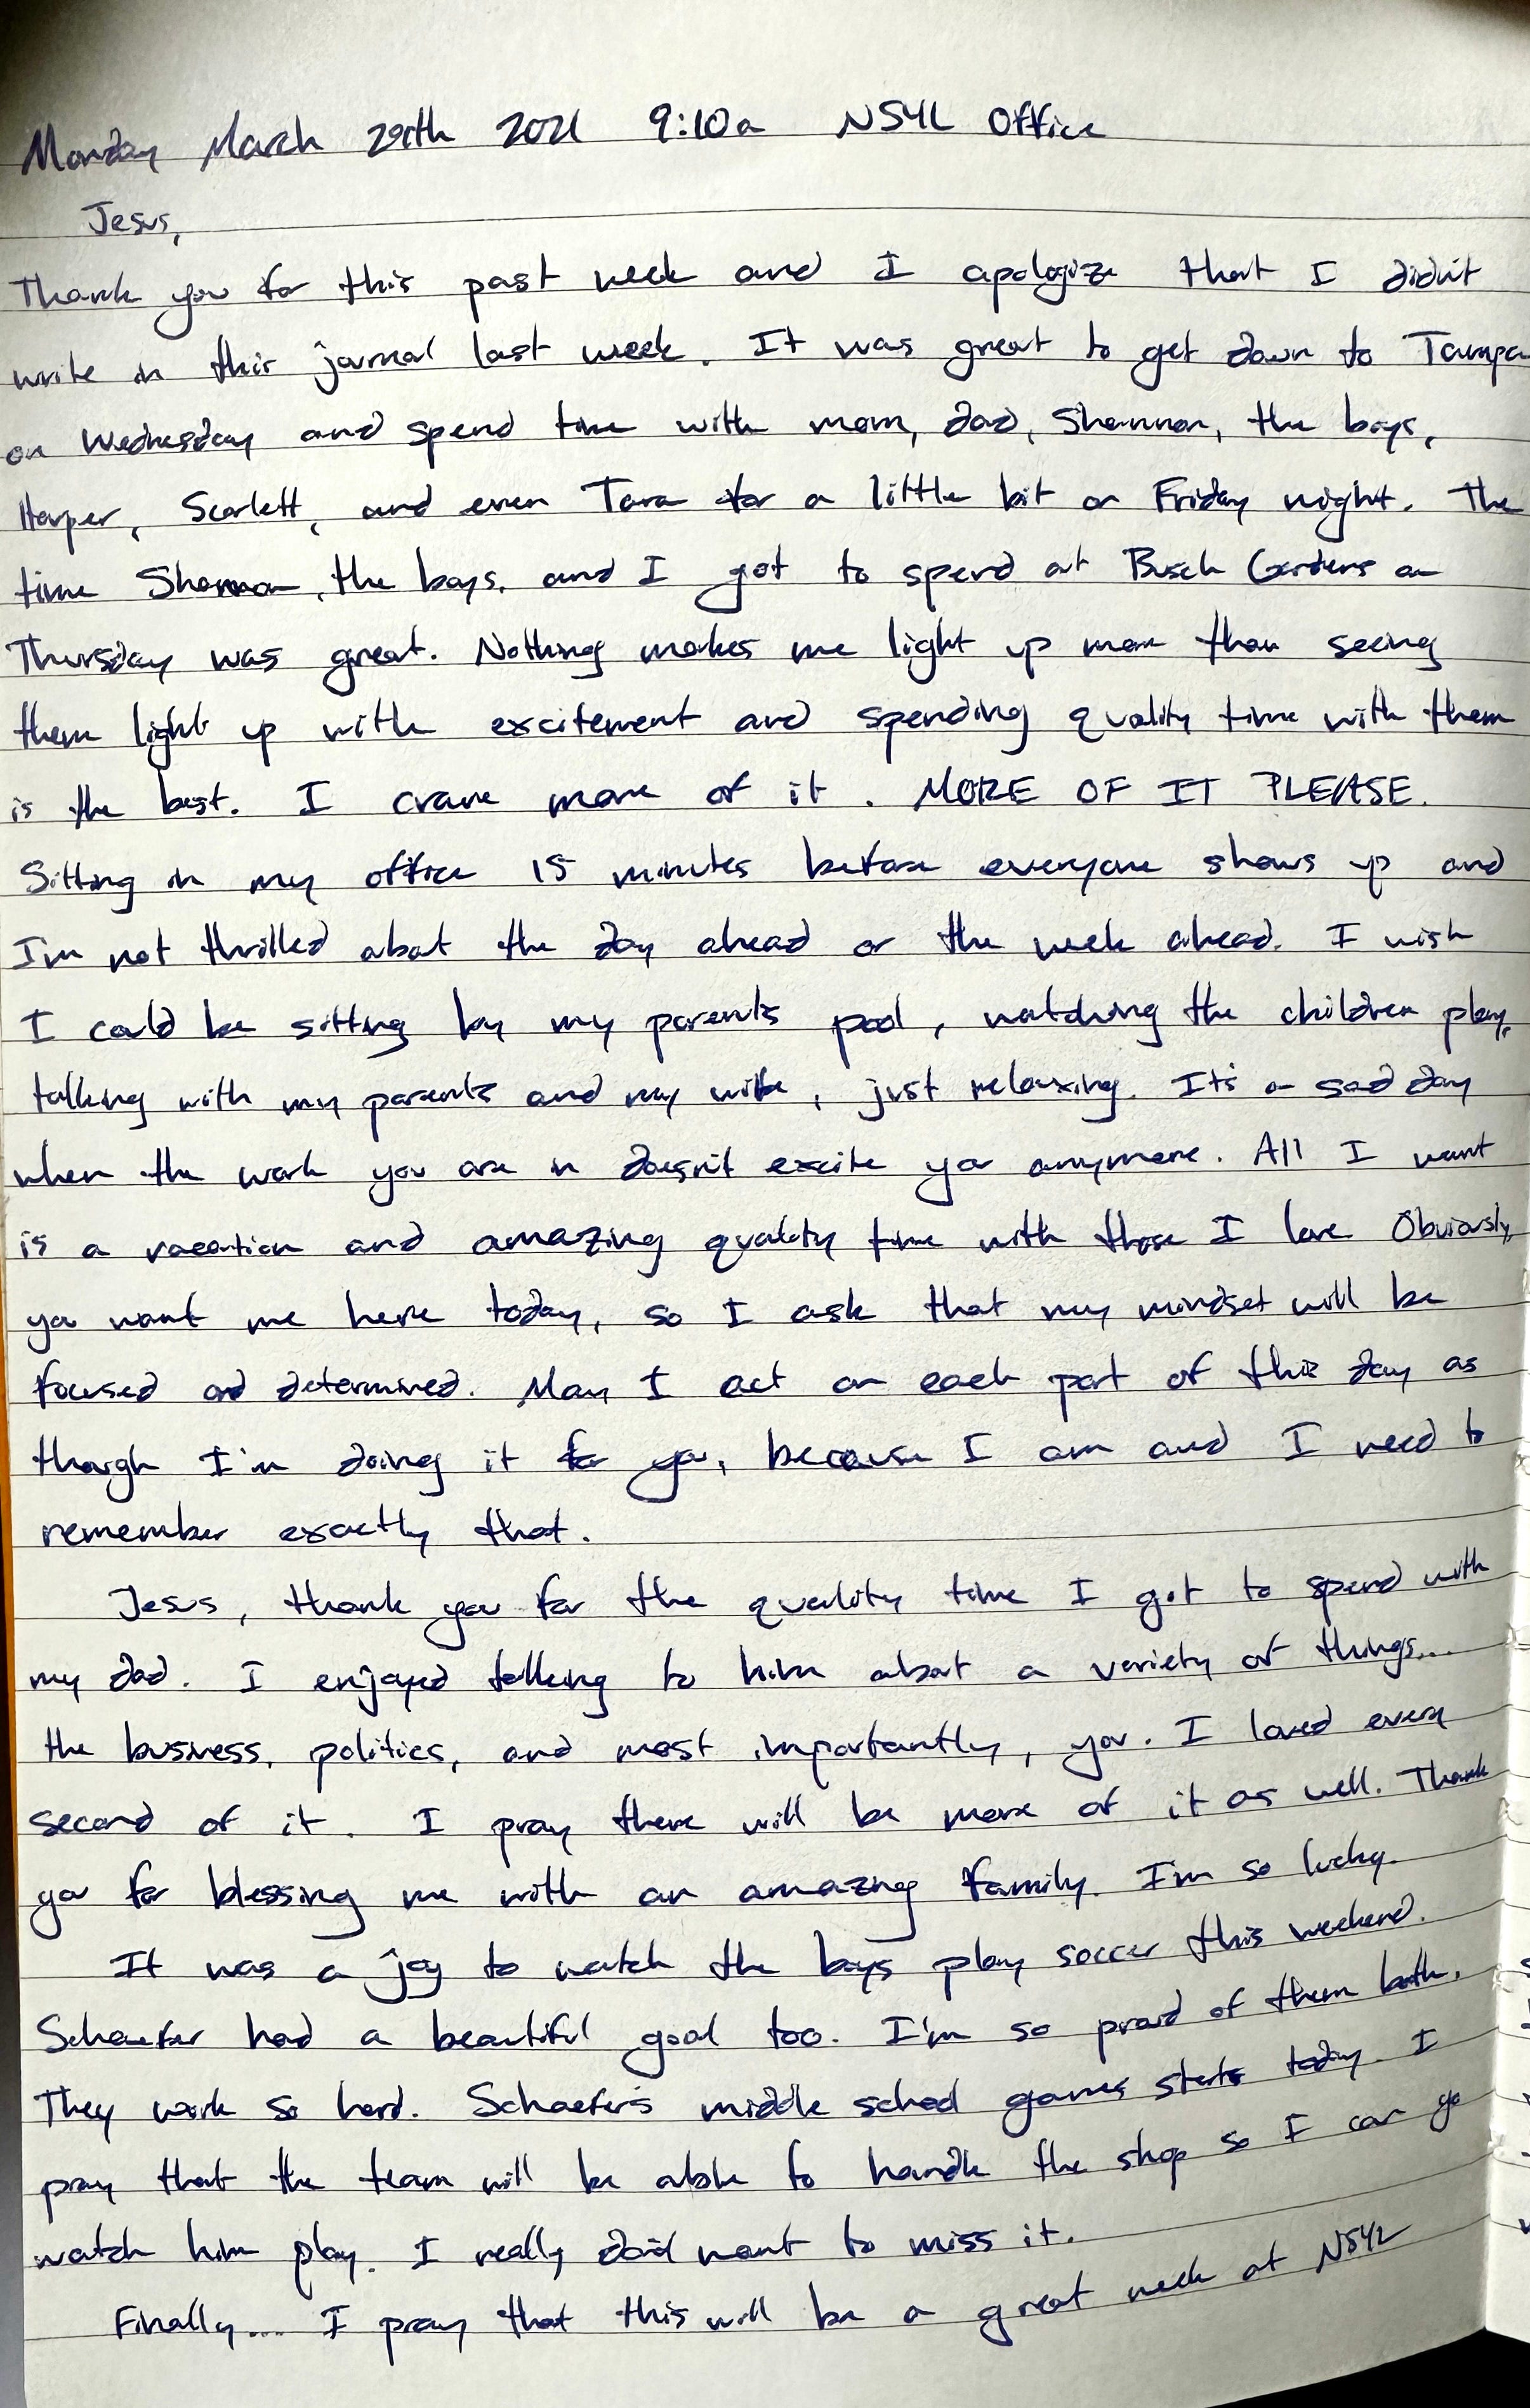 Monday March 29th 2021 9:10a NSYL Office
Jesus,
Thank you for this past week and I apologize that I didn't
write in this journal last week. It was great to get down to Tampa
on Wednesday and spend time with mom, dad, Shannon, the boys,
Harper, Scarlett, and even Tara for a little bit on Friday night. The
time Shannon, the boys, and I got to spend at Busch Gardens on
Thursday was great. Nothing makes me light up more than seeing
them light up with excitement and spending quality time with them
is the best. I crave more of it. MORE OF IT PLEASE.
Sitting in my office 15 minutes before everyone shows up and
I'm not thrilled about the day ahead or the week ahead. I wish
I could be sitting by my parents pool, watching the children play,
talking with my parents and my wife, just relaxing. It's a sad day
when the work you are in doesn't excite you anymore. All I want
is a vacation and amazing quality time with those I love Obviously,
you want me here today, so I ask that my mindset will be
focused and determined. May I act on each part of this day as
though I'm doing it for you, because I am and I need to
remember exactly that.
Jesus, thank you for the quality time I got to spend with
my dad. I enjoyed talking to him about a variety of things...
the business, politics, and most importantly, you. I loved every
second of it. I pray there will be more of it as well. Thank
you for blessing me with an amazing family. I'm so lucky.
It was a joy to watch the boys play soccer this weekend.
Schaefer had a beautiful goal too. I'm so proud of them both.
They work so hard. Schaefer's middle school games starts today. I
pray that the team will be able to handle the shop so I can go
watch him play. I really don't want to miss it.
Finally.... I pray that this will be a great week at NSYL